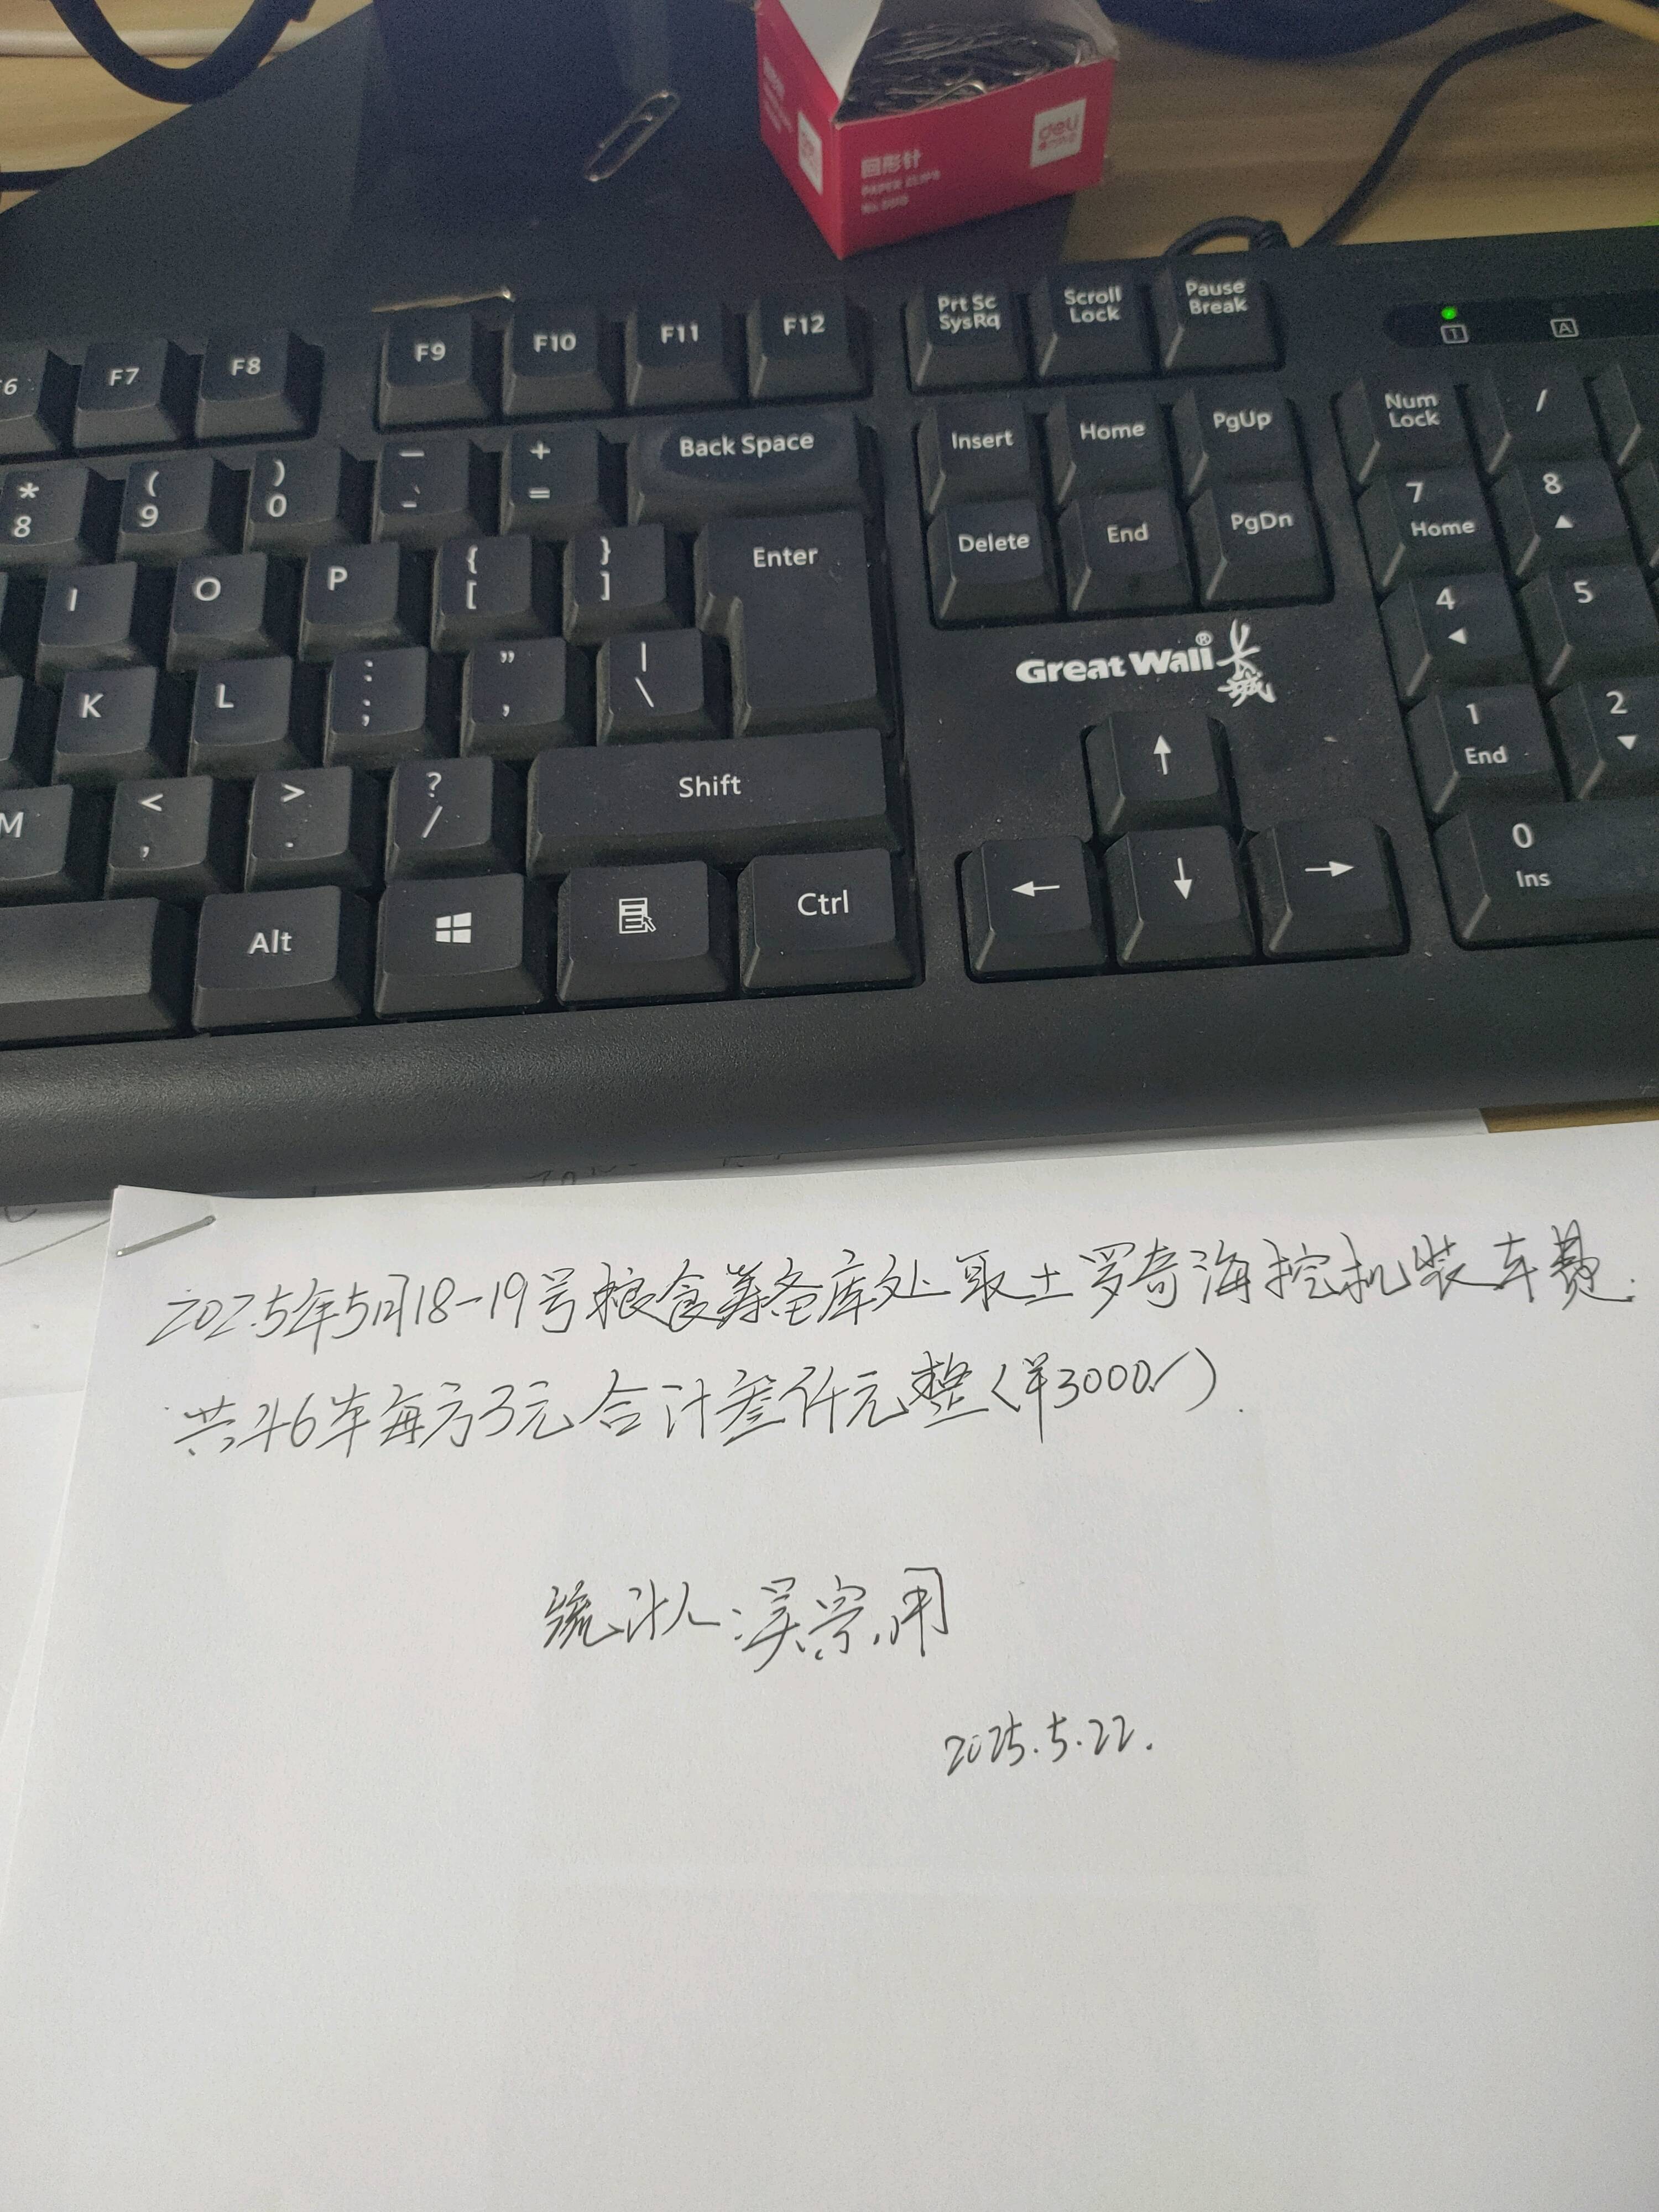 deli
回形针
PAPER CLIPS
Prt Sc SysRq
Scroll Lock
Pause Break
6 F7 F8 F9 F10 F11 F12
1 A
* 8 ( 9 ) 0 — - + = Back Space
Insert Home PgUp
Num Lock /
I O P { [ } ] Enter
Delete End PgDn
7 Home 8
K L : ; " , | \
Great Wall® 长城
4 5
M < , > . ? / Shift
1 End 2
Alt Ctrl
0 Ins
2025年5月18-19号粮食筹备库处取土罗奇海挖机装车费.
共46车每方3元合计叁仟元整(¥3000/)
统计人:吴宗用
2025.5.22.